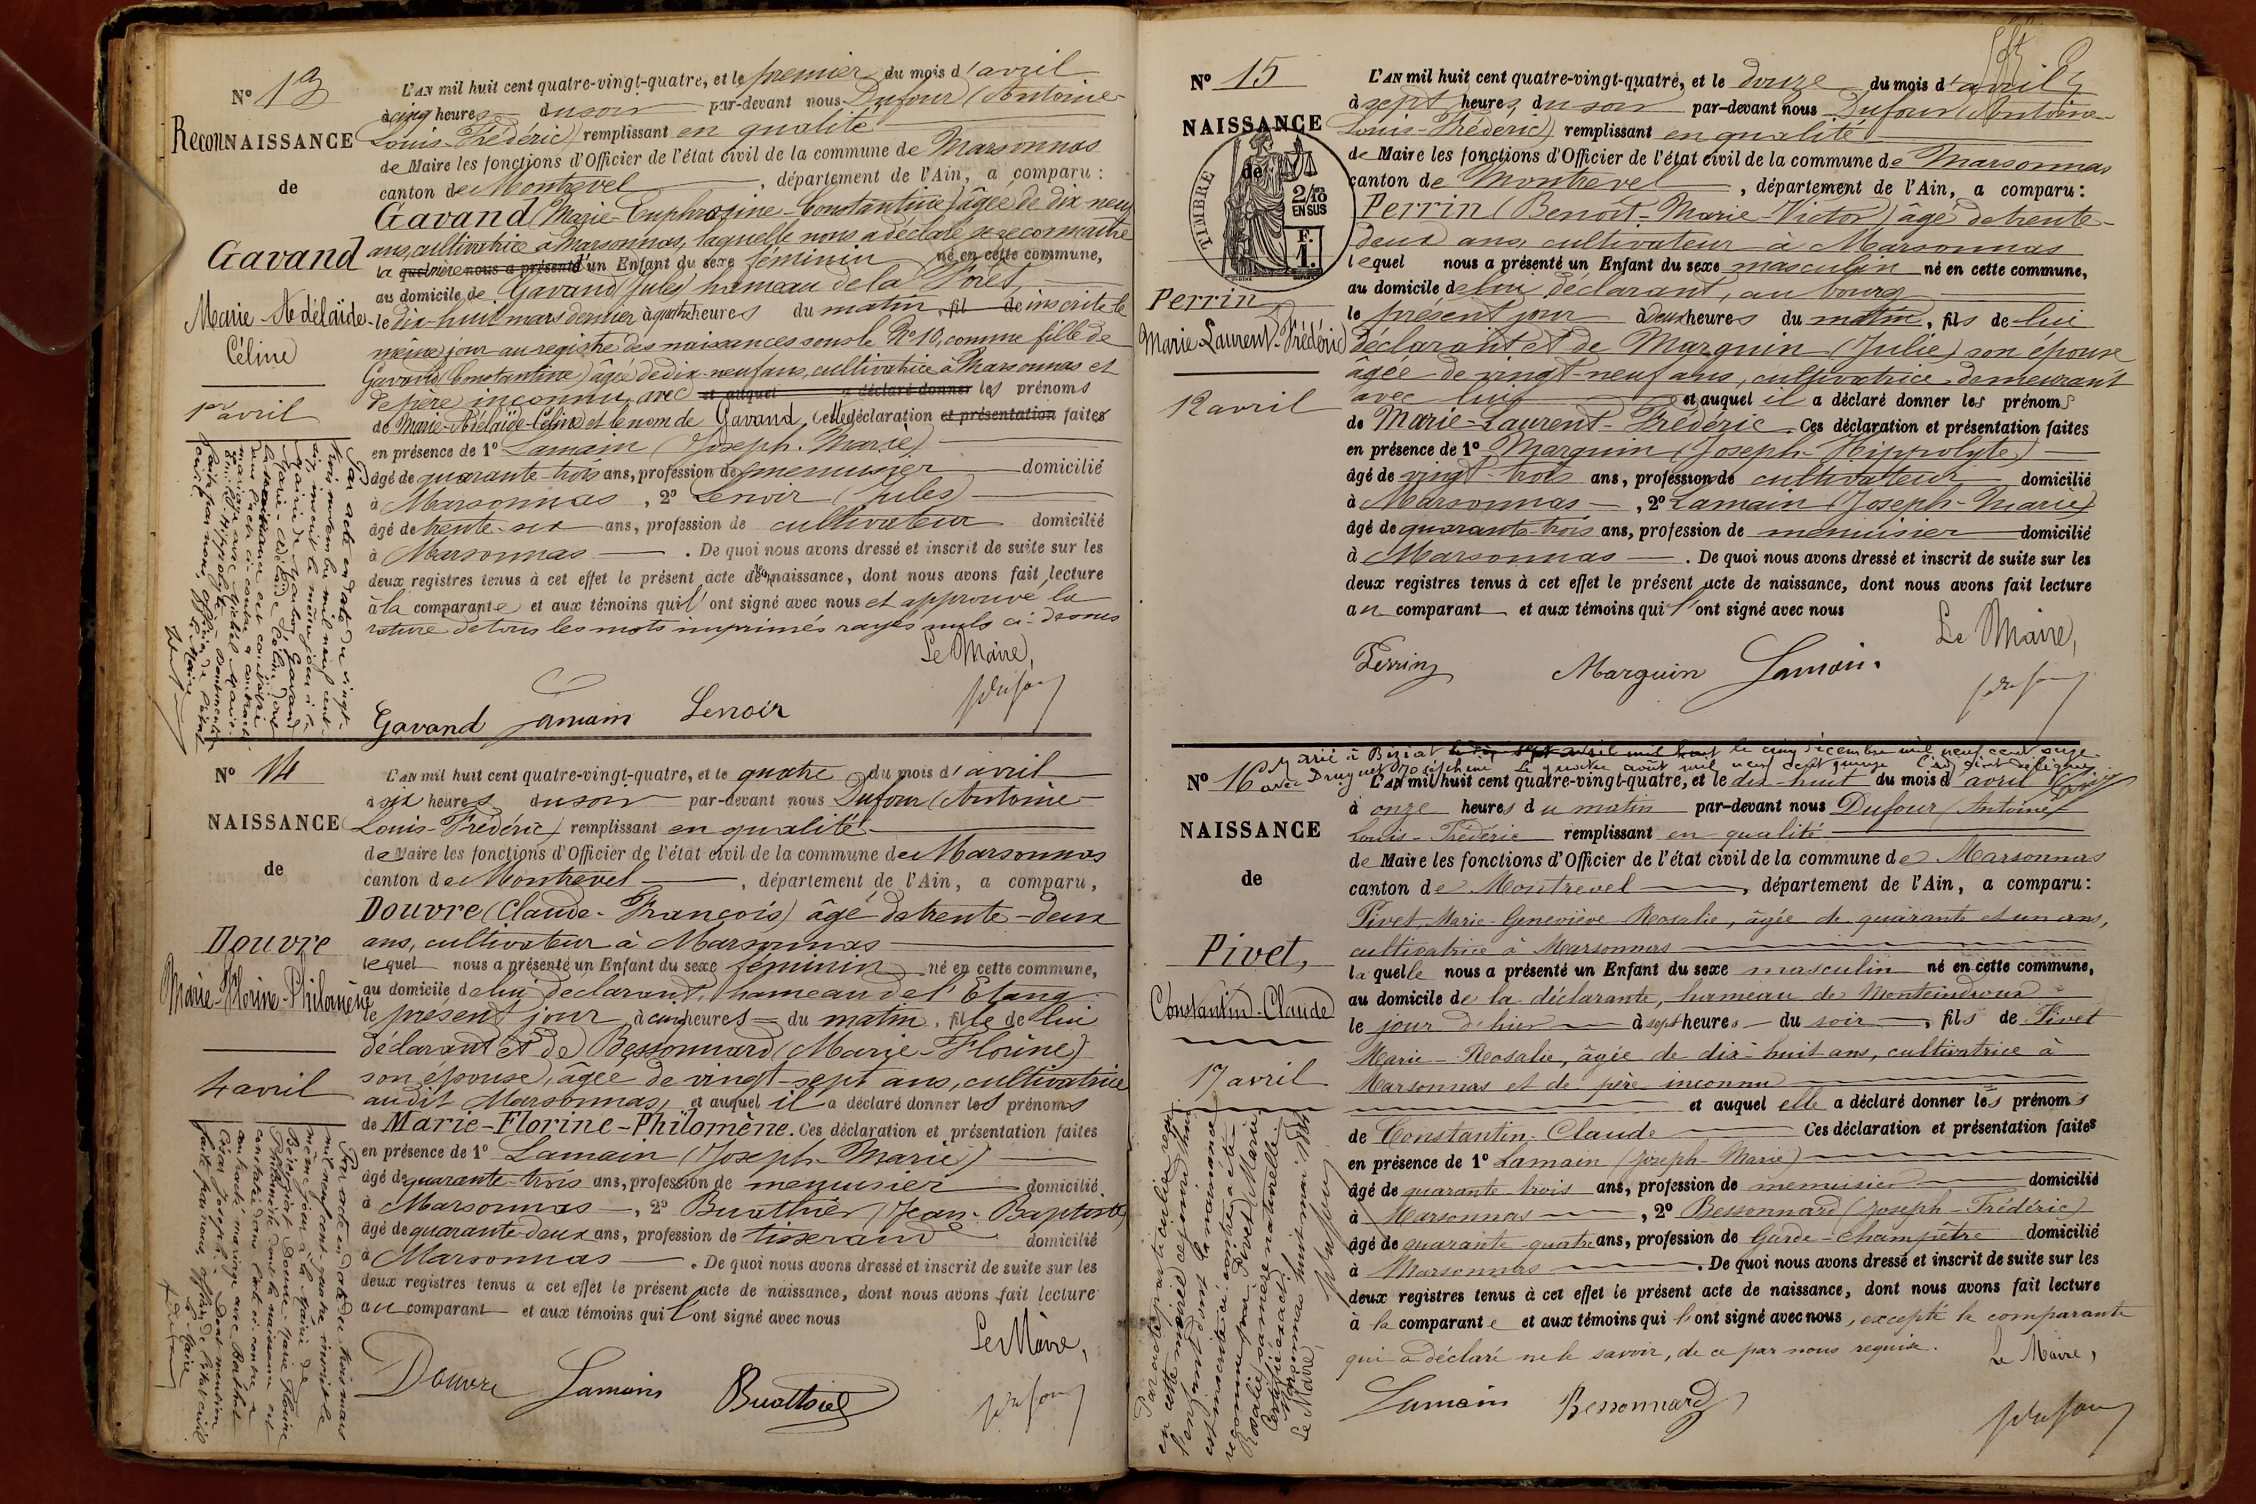 N° 13
ReconNAISSANCE
de
Gavand
Marie-Adélaïde
Céline
1er avril
L'AN mil huit cent quatre-vingt-quatre, et le premier du mois d'avril
à cinq heures du soir par-devant nous Dufour (Antoine
Louis-Frédéric) remplissant en qualité
de Maire les fonctions d'Officier de l'état civil de la commune de Marsonnas
canton de Montrevel, département de l'Ain, a comparu :
Gavand (Marie-Euphrosine-Constantine) âgée de dix-neuf
ans, cultivatrice à Marsonnas, laquelle nous a déclaré se reconnaître
la mère nous a présenté d'un Enfant du sexe féminin né en cette commune,
au domicile de Gavand (Jules) hameau de la Forêt,
le dix-huit mars dernier à quatre heures du matin, fil de inscrite le
même jour au registre des naissances sous le N° 10, comme fille de
Gavand (Constantine) âgée de dix-neuf ans, cultivatrice à Marsonnas et
de père inconnu, avec et auquel a déclaré donner les prénoms
de Marie-Adélaïde-Céline et le nom de Gavand. Cette déclaration et présentation faites
en présence de 1° Lamain (Joseph-Marie)
âgé de quarante-trois ans, profession de menuisier domicilié
à Marsonnas, 2° Lenoir (Jules)
âgé de trente-six ans, profession de cultivateur domicilié
à Marsonnas. De quoi nous avons dressé et inscrit de suite sur les
deux registres tenus à cet effet le présent acte de reconnaissance, dont nous avons fait lecture
à la comparante et aux témoins qui l'ont signé avec nous et approuvé la
rature de tous les mots imprimés rayés nuls ci-dessus
Le Maire,
Gavand Lamain Lenoir Dufour
Par acte en date du vingt-
trois novembre mil neuf cent
dix inscrit le même jour à la
mairie de Gavand
Marie-Adélaïde Céline dont
la naissance est constatée
dans l'acte ci-contre a contracté
mariage avec Marie-
Hippolyte. Dont mention
faite par nous, officier de l'état
civil. Le Maire
N° 14
NAISSANCE
de
Douvre
Marie-Florine-Philomène
4 avril
L'AN mil huit cent quatre-vingt-quatre, et le quatre du mois d'avril
à six heures du soir par-devant nous Dufour (Antoine
Louis-Frédéric) remplissant en qualité
de Maire les fonctions d'Officier de l'état civil de la commune de Marsonnas
canton de Montrevel, département de l'Ain, a comparu,
Douvre (Claude-François) âgé de trente-deux
ans, cultivateur à Marsonnas
lequel nous a présenté un Enfant du sexe féminin né en cette commune,
au domicile de lui déclarant, hameau de l'Etang
le présent jour à cinq heures du matin, fille de lui
déclarant et de Bessonnard (Marie-Florine)
son épouse, âgée de vingt-sept ans, cultivatrice
audit Marsonnas, et auquel il a déclaré donner les prénoms
de Marie-Florine-Philomène. Ces déclaration et présentation faites
en présence de 1° Lamain (Joseph-Marie)
âgé de quarante-trois ans, profession de menuisier domicilié
à Marsonnas, 2° Buathier (Jean-Baptiste)
âgé de quarante-deux ans, profession de tisserand domicilié
à Marsonnas. De quoi nous avons dressé et inscrit de suite sur les
deux registres tenus à cet effet le présent acte de naissance, dont nous avons fait lecture
au comparant et aux témoins qui l'ont signé avec nous
Le Maire,
Douvre Lamain Buathier Dufour
Par acte en date du trois mars
mil neuf cent quatre inscrit le
même jour à la mairie de
Béréziat Douvre Marie Florine
Philomène dont la naissance est
constatée dans l'acte ci-contre a
contracté mariage avec Berthet
Joseph. Dont mention
faite par nous, officier de l'état civil
Le Maire
Dufour
N° 15
NAISSANCE
de
TIMBRE
2/10
EN SUS
F.
1.
Perrin
Marie-Laurent-Frédéric
12 avril
L'AN mil huit cent quatre-vingt-quatre, et le douze du mois d'avril
à sept heures, du soir par-devant nous Dufour (Antoine
Louis-Frédéric) remplissant en qualité
de Maire les fonctions d'Officier de l'état civil de la commune de Marsonnas
canton de Montrevel, département de l'Ain, a comparu :
Perrin (Benoît-Marie-Victor) âgé de trente-
deux ans cultivateur à Marsonnas
lequel nous a présenté un Enfant du sexe masculin né en cette commune,
au domicile de lui déclarant, au bourg
le présent jour à deux heures du matin, fils de lui
déclarant et de Marguin (Julie) son épouse
âgée de vingt-neuf ans, cultivatrice demeurant
avec lui et auquel il a déclaré donner les prénoms
de Marie-Laurent-Frédéric. Ces déclaration et présentation faites
en présence de 1° Marguin (Joseph-Hippolyte)
âgé de vingt-trois ans, profession de cultivateur domicilié
à Marsonnas, 2° Lamain (Joseph-Marie)
âgé de quarante-trois ans, profession de menuisier domicilié
à Marsonnas. De quoi nous avons dressé et inscrit de suite sur les
deux registres tenus à cet effet le présent acte de naissance, dont nous avons fait lecture
au comparant et aux témoins qui l'ont signé avec nous
Le Maire,
Perrin Marguin Lamain Dufour
Marié à Béziat le cinq décembre mil neuf cent onze
avec Druguet Joséphine
N° 16
NAISSANCE
de
Pivet,
Constantin-Claude
17 avril
L'AN mil huit cent quatre-vingt-quatre, et le dix-huit du mois d'avril
à onze heures du matin par-devant nous Dufour (Antoine
Louis-Frédéric remplissant en qualité
de Maire les fonctions d'Officier de l'état civil de la commune de Marsonnas
canton de Montrevel, département de l'Ain, a comparu :
Pivet, Marie-Geneviève-Rosalie, âgée de quarante et un ans,
cultivatrice à Marsonnas
laquelle nous a présenté un Enfant du sexe masculin né en cette commune,
au domicile de la déclarante, hameau de Monteindroux
le jour d'hier à sept heures du soir, fils de Pivet
Marie-Rosalie, âgée de dix-huit ans, cultivatrice à
Marsonnas et de père inconnu
et auquel elle a déclaré donner les prénoms
de Constantin-Claude Ces déclaration et présentation faites
en présence de 1° Lamain (Joseph-Marie)
âgé de quarante trois ans, profession de menuisier domicilié
à Marsonnas, 2° Bessonnard (Joseph-Frédéric)
âgé de quarante-quatre ans, profession de Garde-Champêtre domicilié
à Marsonnas. De quoi nous avons dressé et inscrit de suite sur les
deux registres tenus à cet effet le présent acte de naissance, dont nous avons fait lecture
à la comparante et aux témoins qui l'ont signé avec nous, excepté la comparante
qui a déclaré ne le savoir, de ce par nous requise.
Le Maire,
Lamain Bessonnard Dufour
Par acte particulier reçu
en cette mairie cejourd'hui
l'enfant dont la naissance
est inscrite ci-contre a été
reconnu par Pivet (Marie
Rosalie) sa mère naturelle.
Certifié exact
Marsonnas huit mai 1884
Le Maire,
Dufour